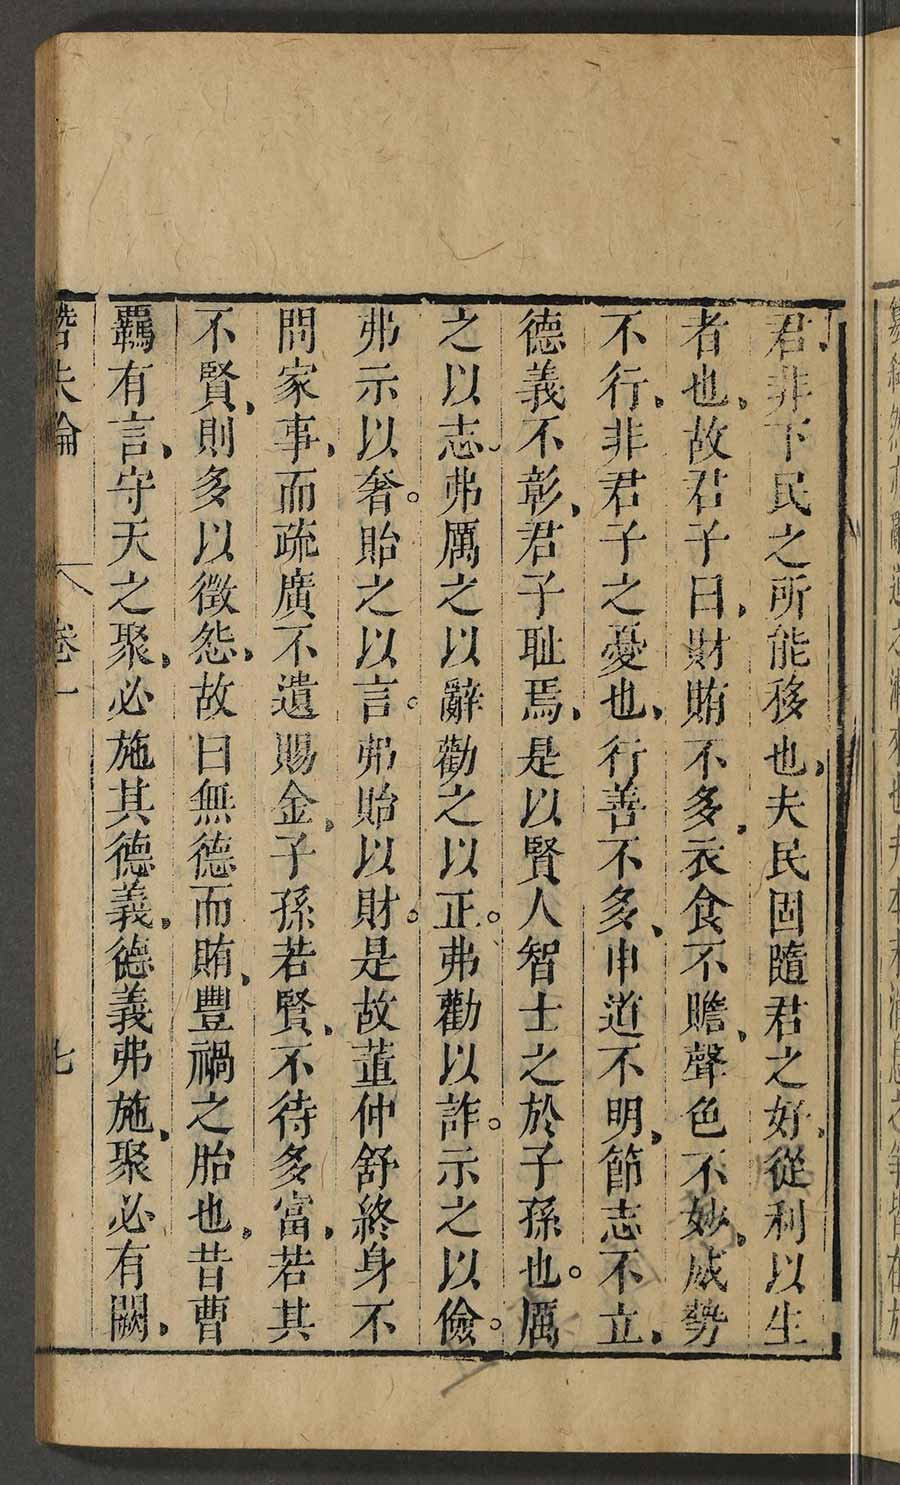 君非下民之所能移也夫民固隨君之好從利以生
者也故君子曰財賄不多衣食不贍聲色不妙威勢
不行非君子之憂也行善不多申道不明節志不立
德義不彰君子耻焉是以賢人智士之於子孫也。厲
之以志弗厲之以辭勸之以正。弗勸以詐。示之以儉。
弗示以奢。貽之以言。弗貽以財。是故董仲舒終身不
問家事而疏廣不遺賜金子孫若賢不待多富若其
不賢則多以徵怨故曰無德而賄豐禍之胎也昔曹
羈有言守天之聚必施其德義德義弗施聚必有闕
潛夫論 卷一 七